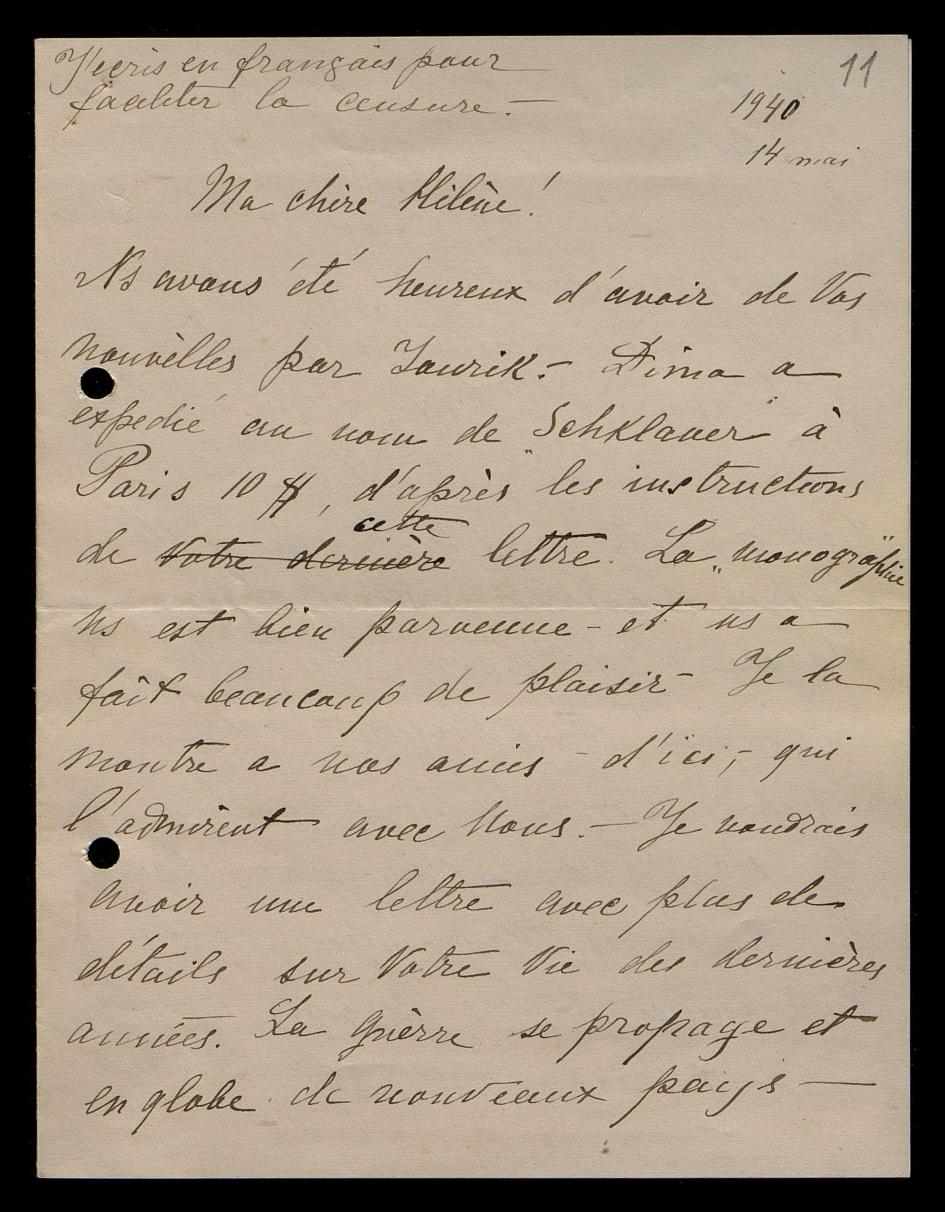 J'écris en français pour
faciliter la censure. —
11
1940
14 mai
Ma chère Hélène!
Ns avons été heureux d'avoir de Vos
nouvèlles par Iourik. — Dima a
expedié au nom de "Schklaver" à
Paris 10 $, d'après les instructions
cette
de votre dernière lettre. La "monographie"
ns est bien parvenue - et ns a
fait beaucoup de plaisir - Je la
montre a nos amis - d'ici, - qui
l'admirent avec Nous. — Je voudrais
avoir une lettre avec plus de
détails sur Votre Vie des dernières
années. La guèrre se propage et
englobe de nouveaux pays —